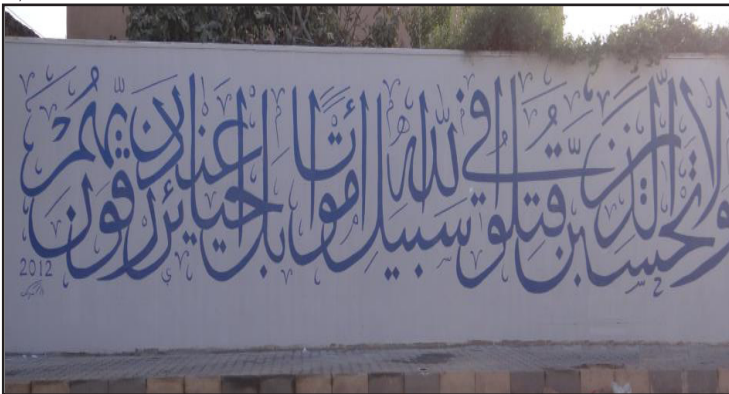 ولا تحسبن الذين قتلوا في سبيل الله أمواتا بل أحياء عند ربهم يرزقون
2012